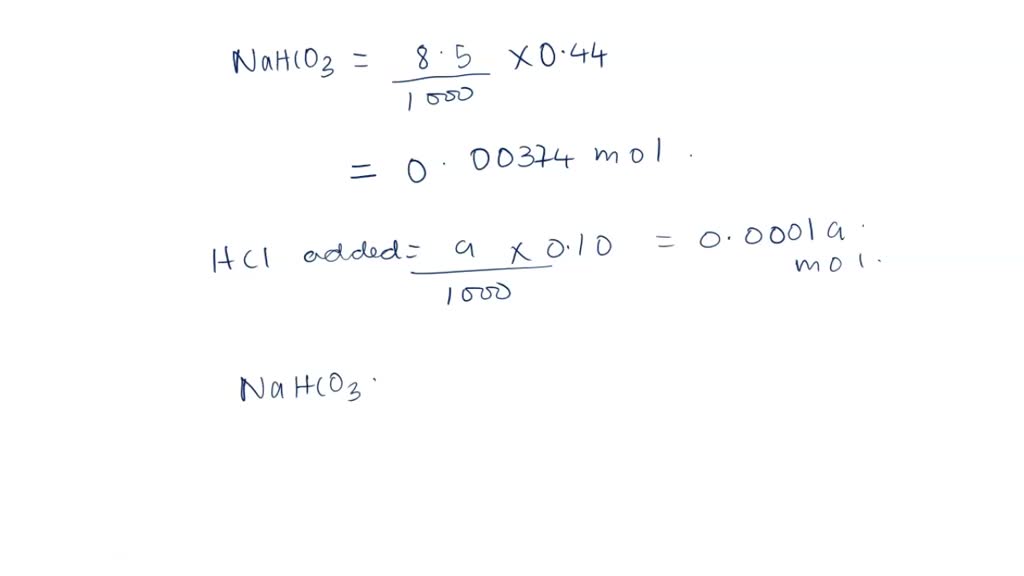 NaHCO3 = 8.5/1000 × 0.44
= 0.00374 mol.
HCl added = a × 0.10/1000 = 0.0001a mol.
NaHCO3